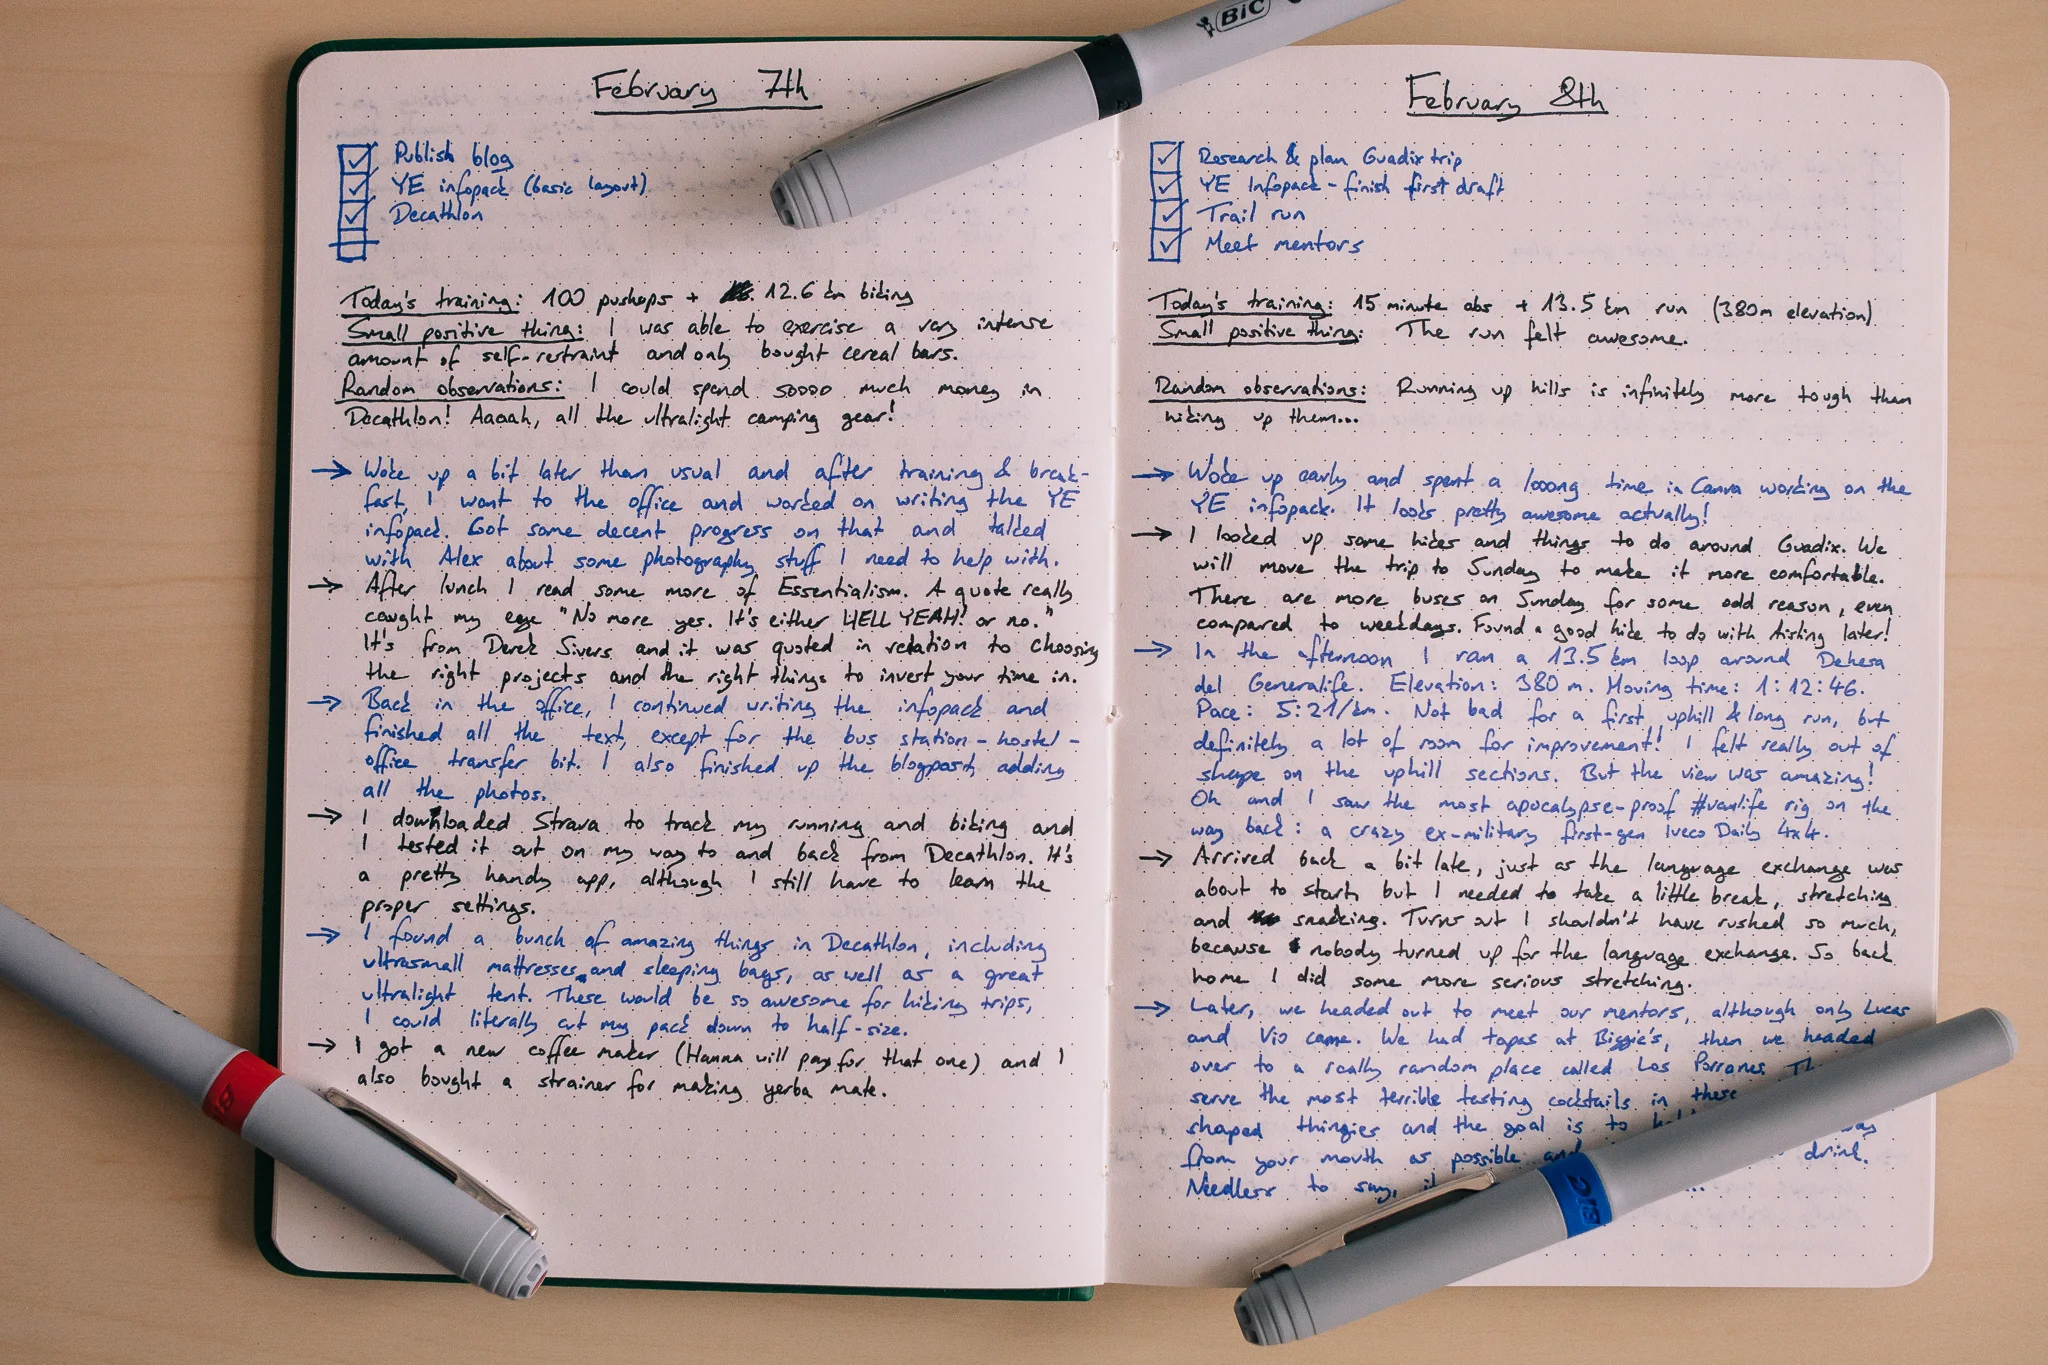 BIC
February 7th
Publish blog
YE infopack (basic layout)
Decathlon
Today's training: 100 pushups + 12.6 km biking
Small positive thing: I was able to exercise a very intense
amount of self-restraint and only bought cereal bars.
Random observations: I could spend soooo much money in
Decathlon! Aaaah, all the ultralight camping gear!
→ Woke up a bit later than usual and after training & break-
fast, I want to the office and worked on writing the YE
infopack. Got some decent progress on that and talked
with Alex about some photography stuff I need to help with.
→ After lunch I read some more of Essentialism. A quote really
caught my eye "No more yes. It's either HELL YEAH! or no."
It's from Derek Sivers and it was quoted in relation to choosing
the right projects and the right things to invest your time in.
→ Back in the office, I continued writing the infopack and
finished all the text, except for the bus station - hostel -
office transfer bit. I also finished up the blogpost, adding
all the photos.
→ I downloaded Strava to track my running and biking and
I tested it out on my way to and back from Decathlon. It's
a pretty handy app, although I still have to learn the
proper settings.
→ I found a bunch of amazing things in Decathlon, including
ultrasmall mattresses and sleeping bags, as well as a great
ultralight tent. These would be so awesome for hiking trips,
I could literally cut my pack down to half-size.
→ I got a new coffee maker (Hanna will pay for that one) and I
also bought a strainer for making yerba mate.
February 8th
Research & plan Guadix trip
YE Infopack - finish first draft
Trail run
Meet mentors
Today's training: 15 minute abs + 13.5 km run (380m elevation)
Small positive thing: The run felt awesome.
Random observations: Running up hills is infinitely more tough than
hiking up them...
→ Woke up early and spent a looong time in Canva working on the
YE infopack. It looks pretty awesome actually!
→ I looked up some hikes and things to do around Guadix. We
will move the trip to Sunday to make it more comfortable.
There are more buses on Sunday for some odd reason, even
compared to weekdays. Found a good hike to do with Aisling later!
→ In the afternoon I ran a 13.5 km loop around Dehesa
del Generalife. Elevation: 380 m. Moving time: 1:12:46.
Pace: 5:21/km. Not bad for a first uphill & long run, but
definitely a lot of room for improvement! I felt really out of
shape on the uphill sections. But the view was amazing!
Oh and I saw the most apocalypse-proof #vanlife rig on the
way back: a crazy ex-military first-gen Iveco Daily 4x4.
→ Arrived back a bit late, just as the language exchange was
about to start, but I needed to take a little break, stretching
and snacking. Turns out I shouldn't have rushed so much,
because nobody turned up for the language exchange. So back
home I did some more serious stretching.
→ Later, we headed out to meet our mentors, although only Lucas
and Vio came. We had tapas at Biggie's, then we headed
over to a really random place called Los Porrones.
serve the most terrible tasting cocktails in these
shaped thingies and the goal is to
from your mouth as possible drink.
Needless to say,
BIC
BIC